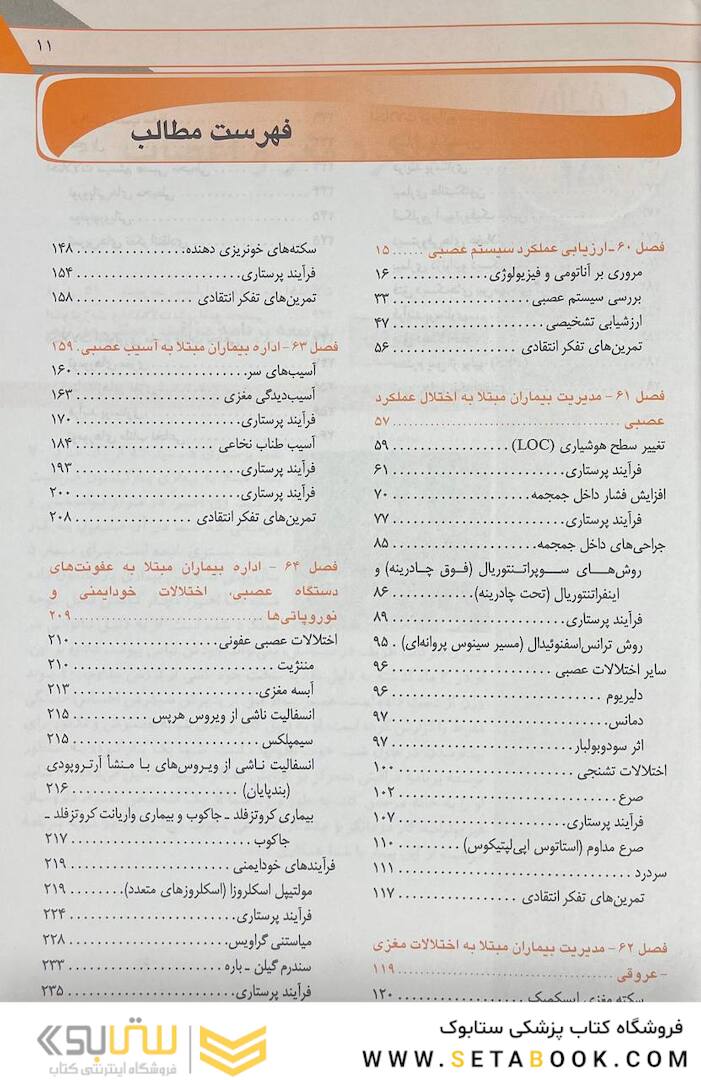 ۱۱
فهرست مطالب
فصل ۶۰ ـ ارزیابی عملکرد سیستم عصبی ...... ۱۵
مروری بر آناتومی و فیزیولوژی ................ ۱۶
بررسی سیستم عصبی ........................ ۳۳
ارزشیابی تشخیصی .......................... ۴۷
تمرین‌های تفکر انتقادی ...................... ۵۶
فصل ۶۱ - مدیریت بیماران مبتلا به اختلال عملکرد
عصبی ........................................ ۵۷
تغییر سطح هوشیاری (LOC) ................. ۵۹
فرآیند پرستاری ............................. ۶۱
افزایش فشار داخل جمجمه .................. ۷۰
فرآیند پرستاری ............................. ۷۷
جراحی‌های داخل جمجمه .................... ۸۵
روش‌هـــای ســـوپراتـــنتوریال (فـــوق چـــادرینه) و
اینفراتنتوریال (تحت چادرینه) ............ ۸۶
فرآیند پرستاری ............................. ۸۹
روش ترانس‌اسفنوئیدال (مسیر سینوس پروانه‌ای) . ۹۵
سایر اختلالات عصبی ........................ ۹۶
دلیریوم ..................................... ۹۶
دمانس ...................................... ۹۷
اثر سودوبولبار .............................. ۹۷
اختلالات تشنجی ............................ ۱۰۰
صرع ....................................... ۱۰۲
فرآیند پرستاری ............................. ۱۰۷
صرع مداوم (استاتوس اپی‌لپتیکوس) ......... ۱۱۰
سردرد ...................................... ۱۱۱
تمرین‌های تفکر انتقادی ..................... ۱۱۷
فصل ۶۲ - مدیریت بیماران مبتلا به اختلالات مغزی
- عروقی ..................................... ۱۱۹
سکته مغزی ایسکمیک ...................... ۱۲۰
سکته‌های خونریزی دهنده .................. ۱۴۸
فرآیند پرستاری ............................. ۱۵۴
تمرین‌های تفکر انتقادی ..................... ۱۵۸
فصل ۶۳ - اداره بیماران مبتلا به آسیب عصبی . ۱۵۹
آسیب‌های سر .............................. ۱۶۰
آسیب‌دیدگی مغزی ......................... ۱۶۳
فرآیند پرستاری ............................. ۱۷۰
آسیب طناب نخاعی ........................ ۱۸۴
فرآیند پرستاری ............................. ۱۹۳
فرآیند پرستاری ............................. ۲۰۰
تمرین‌های تفکر انتقادی ..................... ۲۰۸
فصل ۶۴ - اداره بیماران مبتلا به عفونت‌های
دستگاه عصبی، اختلالات خودایمنی و
نوروپاتی‌ها .................................. ۲۰۹
اختلالات عصبی عفونی ...................... ۲۱۰
مننژیت ..................................... ۲۱۰
آبسه مغزی ................................. ۲۱۳
انسفالیت ناشی از ویروس هرپس ........... ۲۱۵
سیمپلکس ................................. ۲۱۵
انسفالیت ناشی از ویـروس‌های بـا مـنشأ آرتـروپودی
(بندپایان) .................................. ۲۱۶
بیماری کروتزفلد ـ جاکوب و بیماری واریانت کروتزفلد ـ
جاکوب ..................................... ۲۱۷
فرآیندهای خودایمنی ........................ ۲۱۹
مولتیپل اسکلروزا (اسکلروزهای متعدد) ........ ۲۱۹
فرآیند پرستاری ............................. ۲۲۴
میاستنی گراویس ........................... ۲۲۸
سندرم گیلن ـ باره .......................... ۲۳۳
فرآیند پرستاری ............................. ۲۳۵
فروشگاه کتاب پزشکی ستابوک
WWW.SETABOOK.COM
ستابوک
فروشگاه اینترنتی کتاب